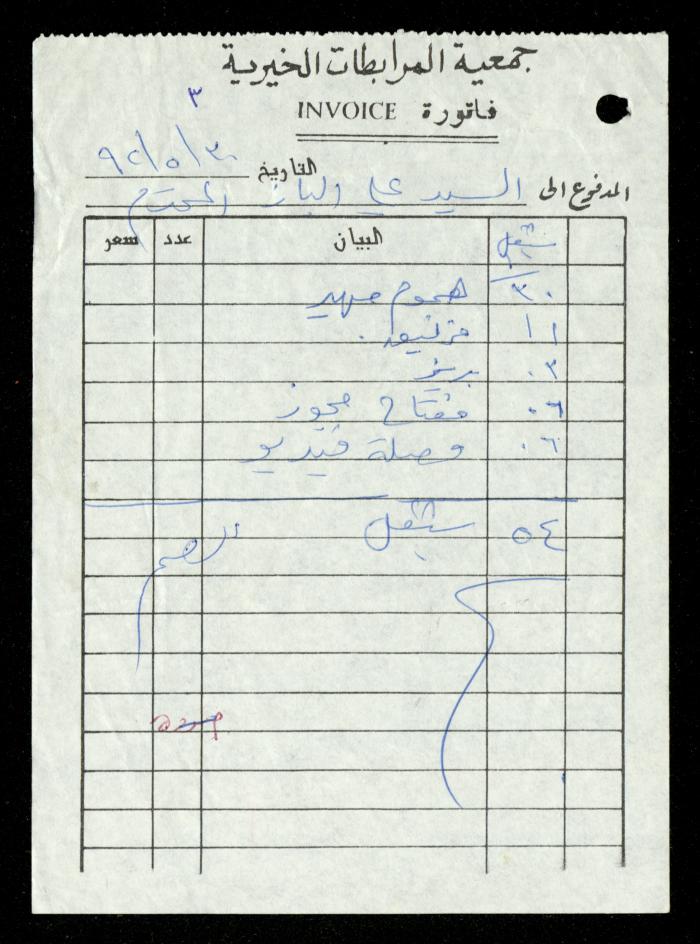 جمعية المرابطات الخيرية
٣
فاتورة INVOICE
التاريخ ٩٢/٥/٣٠
المدفوع الى السيد علي الباز المحترم
شيقل البيان عدد سعر
٣٠
١١
٠٣ بريز
٠٦ مفتاح مجوز
٠٦ وصلة فيديو
٥٤ شيقل